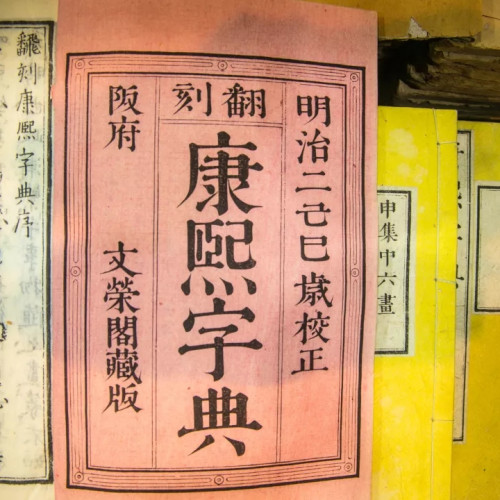 明治二己巳歳校正
翻刻
康熙字典
阪府　文榮閣藏版
申集中六畫
飜刻康熙字典序